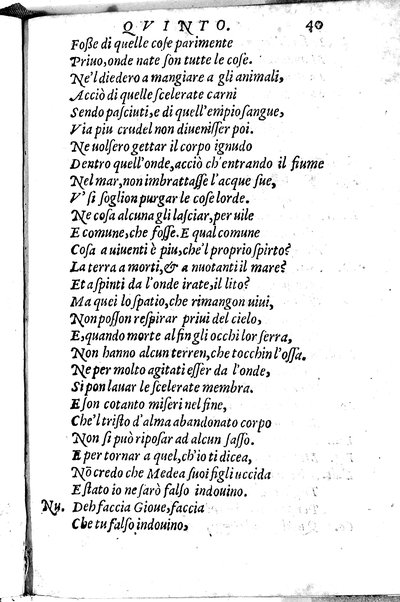 QVINTO. 40
Foſſe di quelle coſe parimente
Priuo, onde nate ſon tutte le coſe.
Ne'l diedero a mangiare a gli animali,
Acciò di quelle ſcelerate carni
Sendo paſciuti, e di quell'empio ſangue,
Via piu crudel non diueniſſer poi.
Ne uolſero gettar il corpo ignudo
Dentro quell'onde, acciò ch'entrando il fiume
Nel mar, non imbrattaſſe l'acque ſue,
V' ſi ſoglion purgar le coſe lorde.
Ne coſa alcuna gli laſciar, per uile
E comune, che foſſe. E qual comune
Coſa a uiuenti è piu, che'l proprio ſpirto?
La terra a morti, & a nuotanti il mare?
Et a ſpinti da l'onde irate, il lito?
Ma quei lo ſpatio, che rimangon uiui,
Non poſſon reſpirar priui del cielo,
E, quando morte al fin gli occhi lor ſerra,
Non hanno alcun terren, che tocchin l'oſſa.
Ne per molto agitati eſſer da l'onde,
Si pon lauar le ſcelerate membra.
E ſon cotanto miſeri nel fine,
Che'l triſto d'alma abandonato corpo
Non ſi può ripoſar ad alcun ſaſſo.
E per tornar a quel, ch'io ti dicea,
Nō credo che Medea ſuoi figli uccida
E ſtato io ne ſarò falſo indouino.
Nu. Deh faccia Gioue, faccia
Che tu falſo indouino,